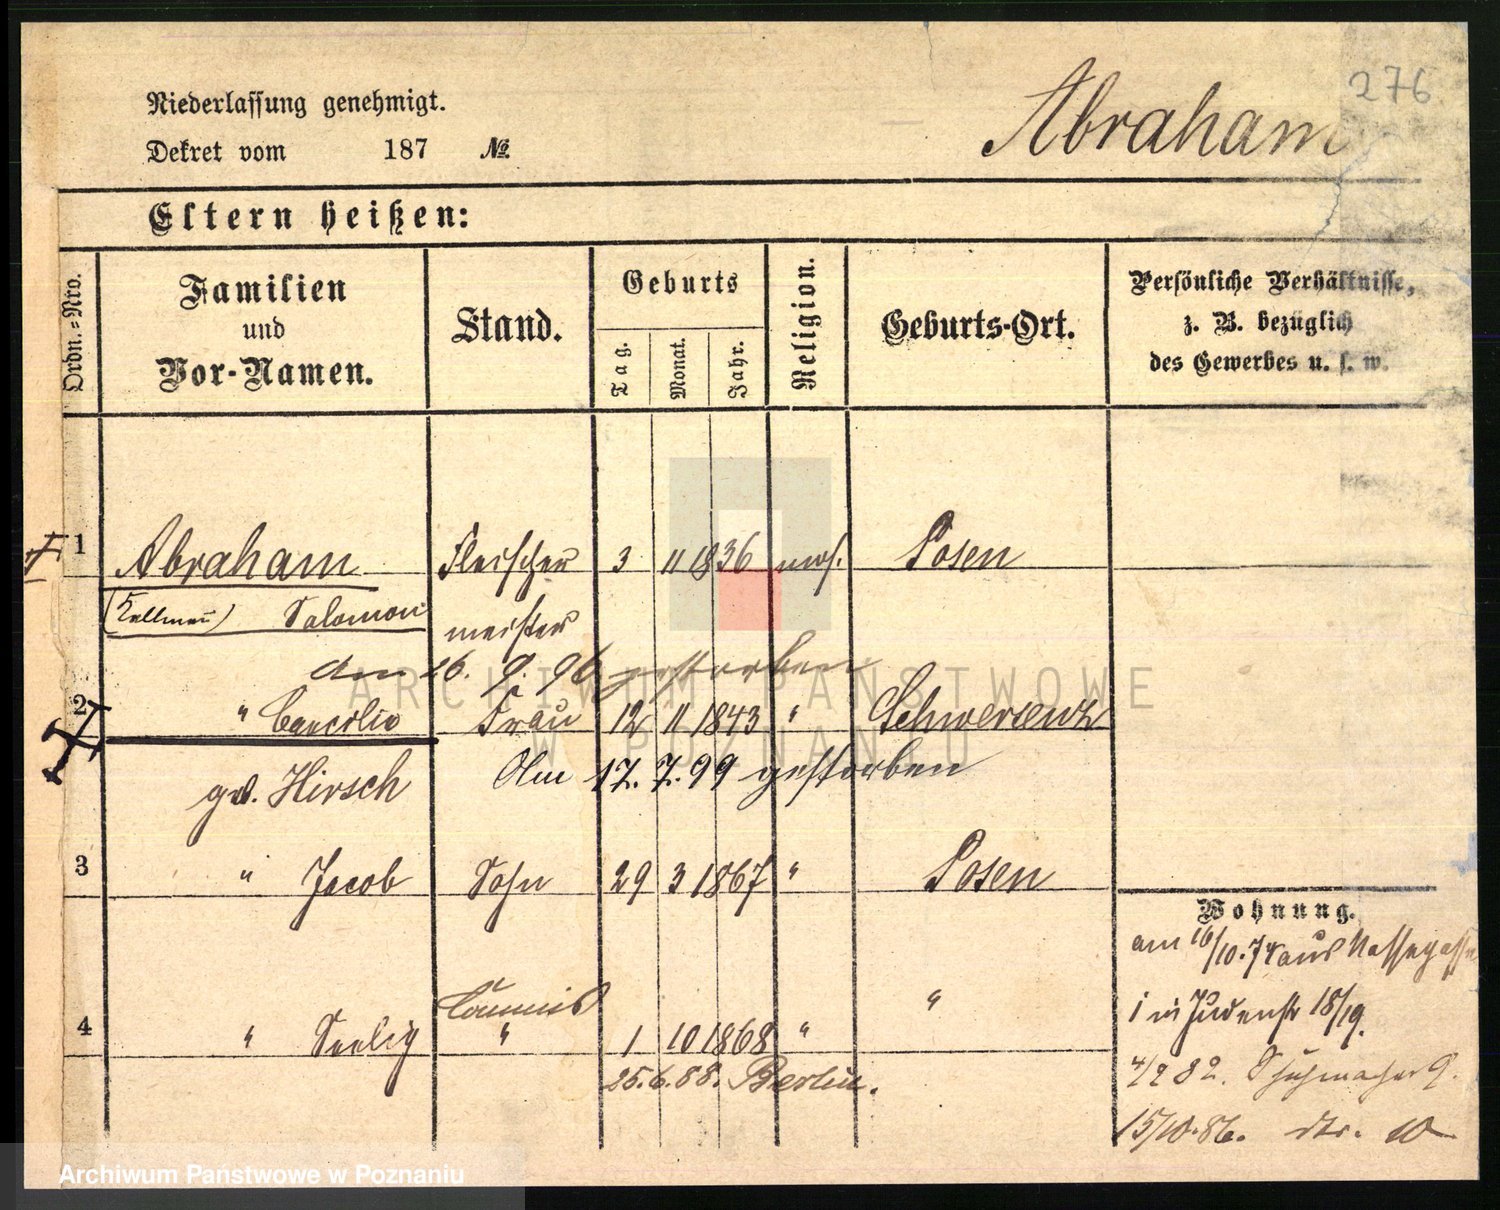 276
Niederlassung genehmigt.
Abraham
Dekret vom 187 №
Eltern heißen:
Ordn.=Nro.
Familien und Vor-Namen.
Stand.
Geburts
Tag. Monat. Jahr.
Religion.
Geburts-Ort.
Persönliche Verhältnisse,
z. B. bezüglich
des Gewerbes u. s. w.
1 Abraham Fleischer 3 11 1836 mos. Posen
Salomon meister
am 16. 9. 96 gestorben
2 " Frau 12 11 1843 " Schwersenz
geb. Hirsch Am 17. 7. 99 gestorben
3 " Jacob Sohn 29 3 1867 " Posen
Commis
4 " Seelig " 1 10 1868 " "
25. 6. 88. Berlin.
Wohnung.
am 16/10. 74 aus Nassegasse
1 in Judenstr 18/19.
4/2 82. Schuhmacher
15/10. 86. str. 10
ARCHIWUM PAŃSTWOWE
W POZNANIU
Archiwum Państwowe w Poznaniu